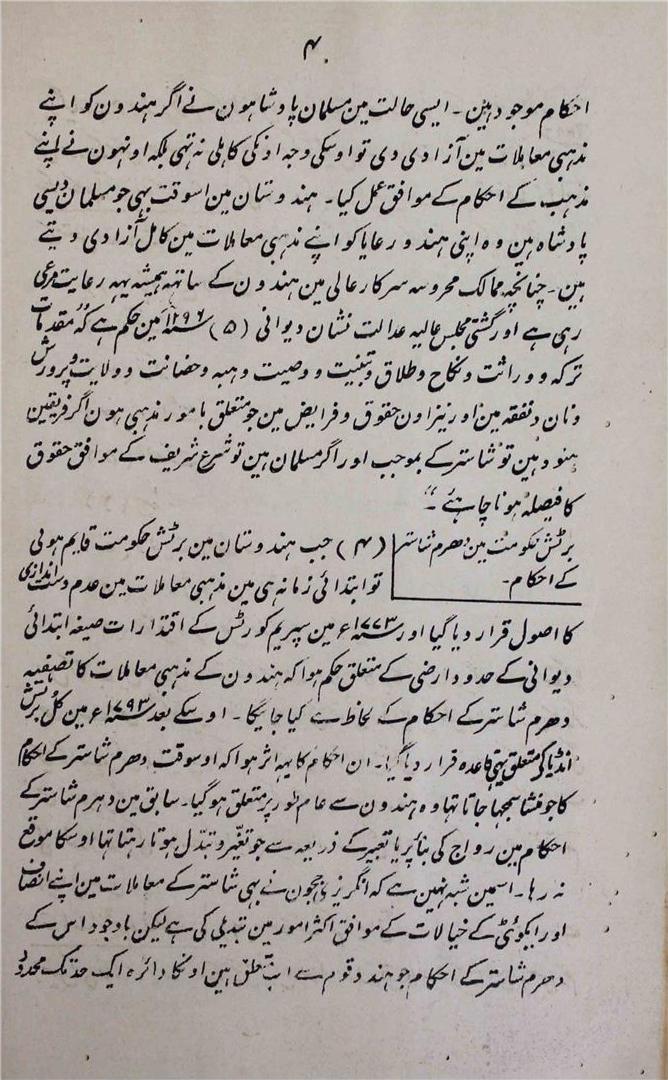 ۴
احکام موجود ہین۔ ایسی حالت مین مسلمان پادشاہون نے اگر ہندون کو اپنے
مذہبی معاملات مین آزادی دی تو اوسکی وجہ اونکی کاہلی نہ تہی بلکہ اونہون نے اپنے
مذہب کے احکام کے موافق عمل کیا۔ ہندوستان مین اسوقت بہی جو مسلمان دیسی
پادشاہ ہین وہ اپنی ہندو رعایا کو اپنے مذہبی معاملات مین کامل آزادی دیتے
ہین۔ چنانچہ ممالک محروسہ سرکار عالی مین ہندون کے ساتہہ ہمیشہ یہہ رعایت مرعی
رہی ہے اور گشتی مجلس عالیہ عدالت نشان دیوانی (۵) سنہ ۱۲۹۶ مین حکم ہے کہ "مقدمات
ترکہ و وراثت و نکاح و طلاق و تبنیت و وصیت و ہبہ و حضانت و ولایت و پرورش
و نان و نفقہ مین اور نیز اون حقوق و فرایض مین جو متعلق بامور مذہبی ہون اگر فریقین
ہنود ہین تو شاستر کے بموجب اور اگر مسلمان ہین تو شرع شریف کے موافق حقوق
کا فیصلہ ہونا چاہئے۔"
برٹش حکومت مین دھرم شاستر
کے احکام۔
(۴) جب ہندوستان مین برٹش حکومت قایم ہوئی
تو ابتدائی زمانہ ہی مین مذہبی معاملات مین عدم دست اندازی
کا اصول قرار دیا گیا اور سنہ ۱۷۷۳ء مین سپریم کورٹس کے اقتدارات صیغہ ابتدائی
دیوانی کے حدود ارضی کے متعلق حکم ہوا کہ ہندون کے مذہبی معاملات کا تصفیہ
دھرم شاستر کے احکام کے لحاظ سے کیا جائیگا۔ اوسکے بعد سنہ ۱۷۹۳ء مین کل برٹش
انڈیا کی متعلق یہی قاعدہ قرار دیا گیا۔ ان احکام کا یہہ اثر ہوا کہ اوسوقت دھرم شاستر کے احکام
کا جو منشا سمجہا جاتا تہا وہ ہندون سے عام طور پر متعلق ہوگیا۔ سابق مین دہرم شاستر کے
احکام مین رواج کی بنا پر یا تعبیر کے ذریعہ سے جو تغیّر و تبدّل ہوتا رہتا تہا اوسکا موقع
نہ رہا۔ اسمین شبہ نہین ہے کہ انگریزی ججون نے بہی شاستر کے معاملات مین اپنے انصاف
اور ایکوئٹی کے خیالات کے موافق اکثر امور مین تبدیلی کی ہے لیکن باوجود اس کے
دھرم شاستر کے احکام جو ہندو قوم سے اب متعلق ہین اونکا دائرہ ایک حد تک محدود